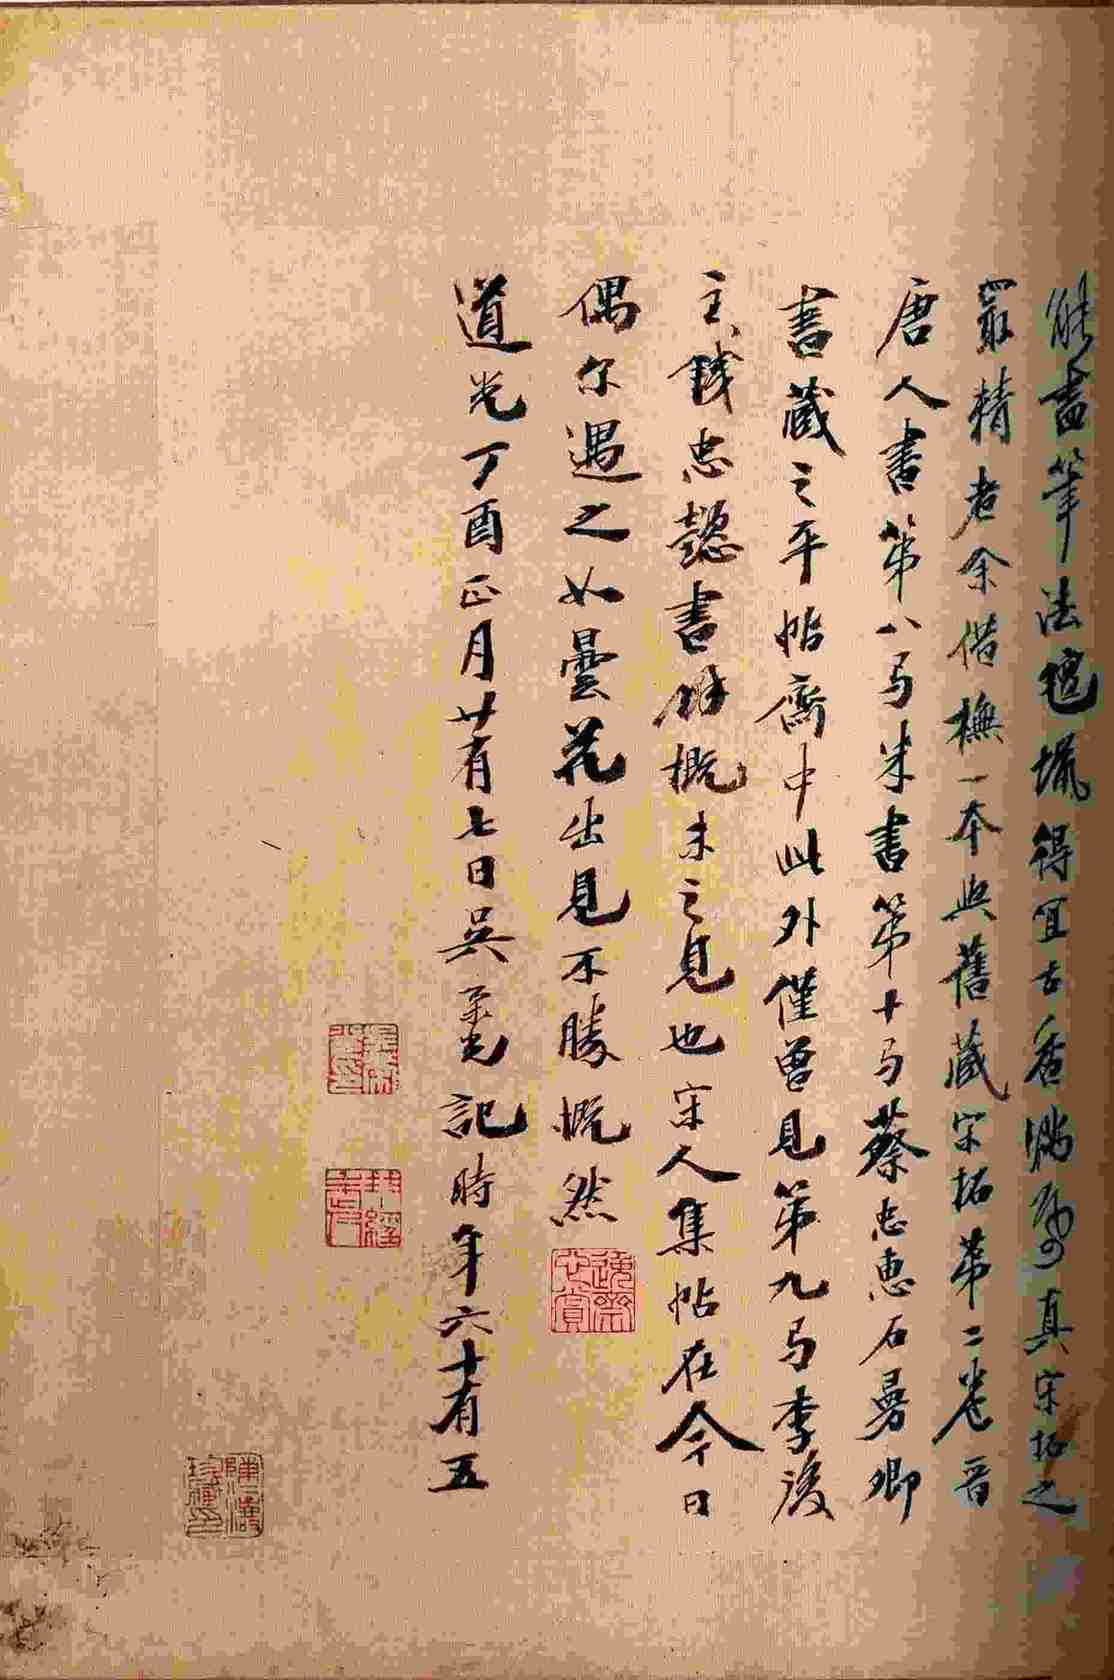 能盡筆法氊蠟得宜古香滿馬真宋拓之
冣精者余借橅一本與舊藏宋拓第二卷晉
唐人書第八与米書第十与蔡忠惠石曼卿
書藏之平帖齋中此外僅曾見第九与李後
主錢忠懿書餘概未之見也宋人集帖在今日
偶尔遇之如曇花出見不勝慨然
道光丁酉正月廿有七日吳榮光記時年六十有五